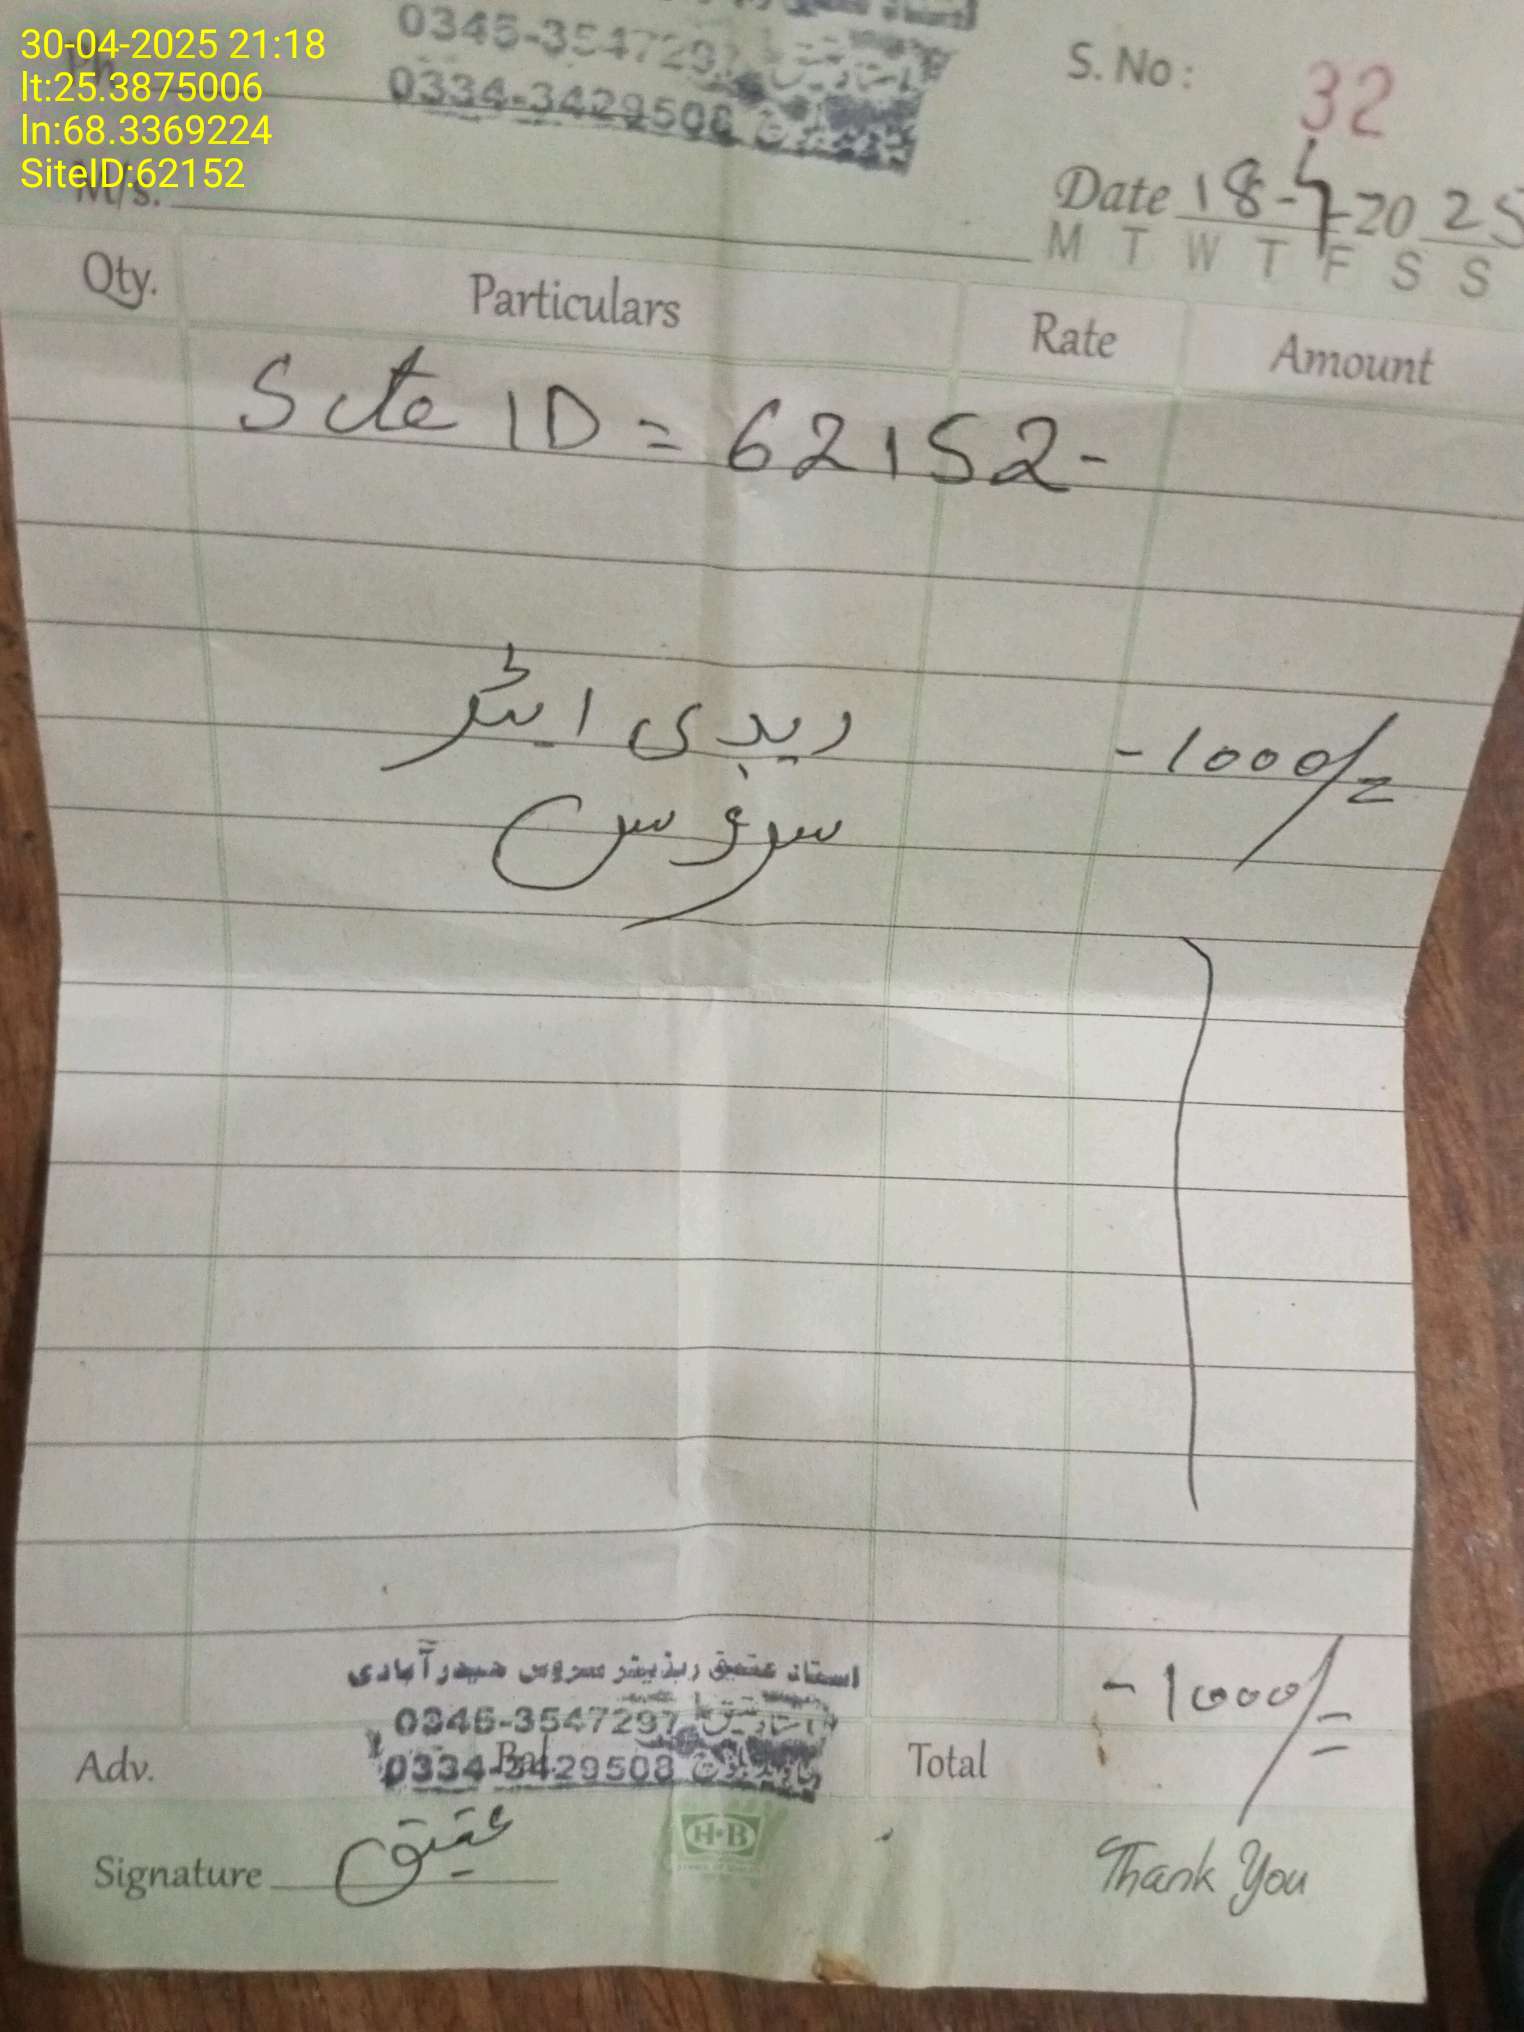 30-04-2025 21:18
lt:25.3875006
ln:68.3369224
SiteID:62152
Ph
0345-3547297
0334-3429508
S. No: 32
M/s.
Date 18-4-2025
M T W T F S S
Qty. Particulars Rate Amount
Site ID = 62152-
ریڈی ایٹر -1000/=
سروس
استاد عتیق ریڈیٹر سروس حیدرآبادی
0345-3547297
0334-3429508
-1000/=
Adv. Bal. Total
Signature عتیق
H·B
Thank You